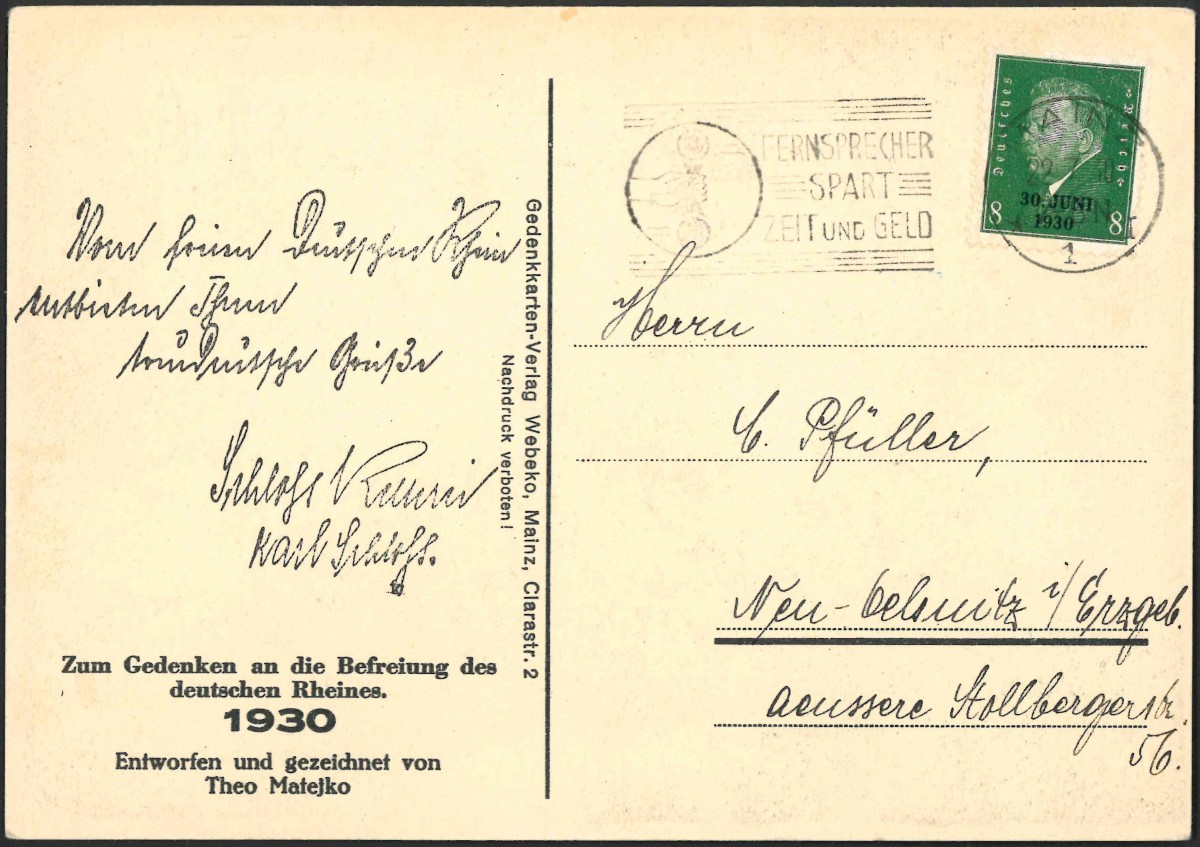 Vom freien Deutschen Rhein
entbieten Ihnen
treudeutsche Grüße
Schloss
Karl Schloss.
Zum Gedenken an die Befreiung des
deutschen Rheines.
1930
Entworfen und gezeichnet von
Theo Matejko
Gedenkkarten-Verlag Webeko, Mainz, Clarastr. 2
Nachdruck verboten!
FERNSPRECHER
SPART
ZEIT UND GELD
Deutsches Reich
30. JUNI
1930
8 8
MAINZ
22
1
Herrn
C. Pfüller,
Neu-Oelsnitz i/Erzgeb.
aeussere Stollbergerstr.
56.